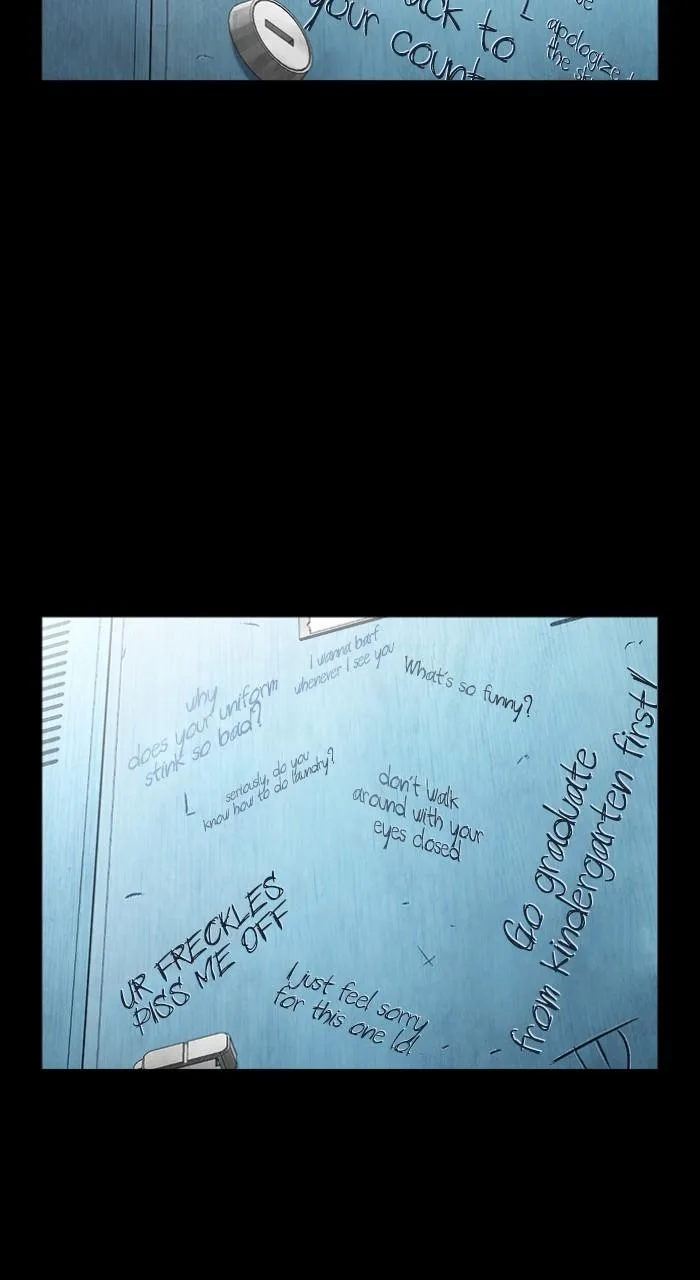 ack to
your count
apologize
the sk
I wanna barf
whenever I see you
What's so funny?
why
does your uniform
stink so bad?
seriously, do you
know how to do laundry?
don't walk
around with your
eyes closed
Go graduate
from kindergarten first!
UR FRECKLES
PISS ME OFF
I just feel sorry
for this one lol